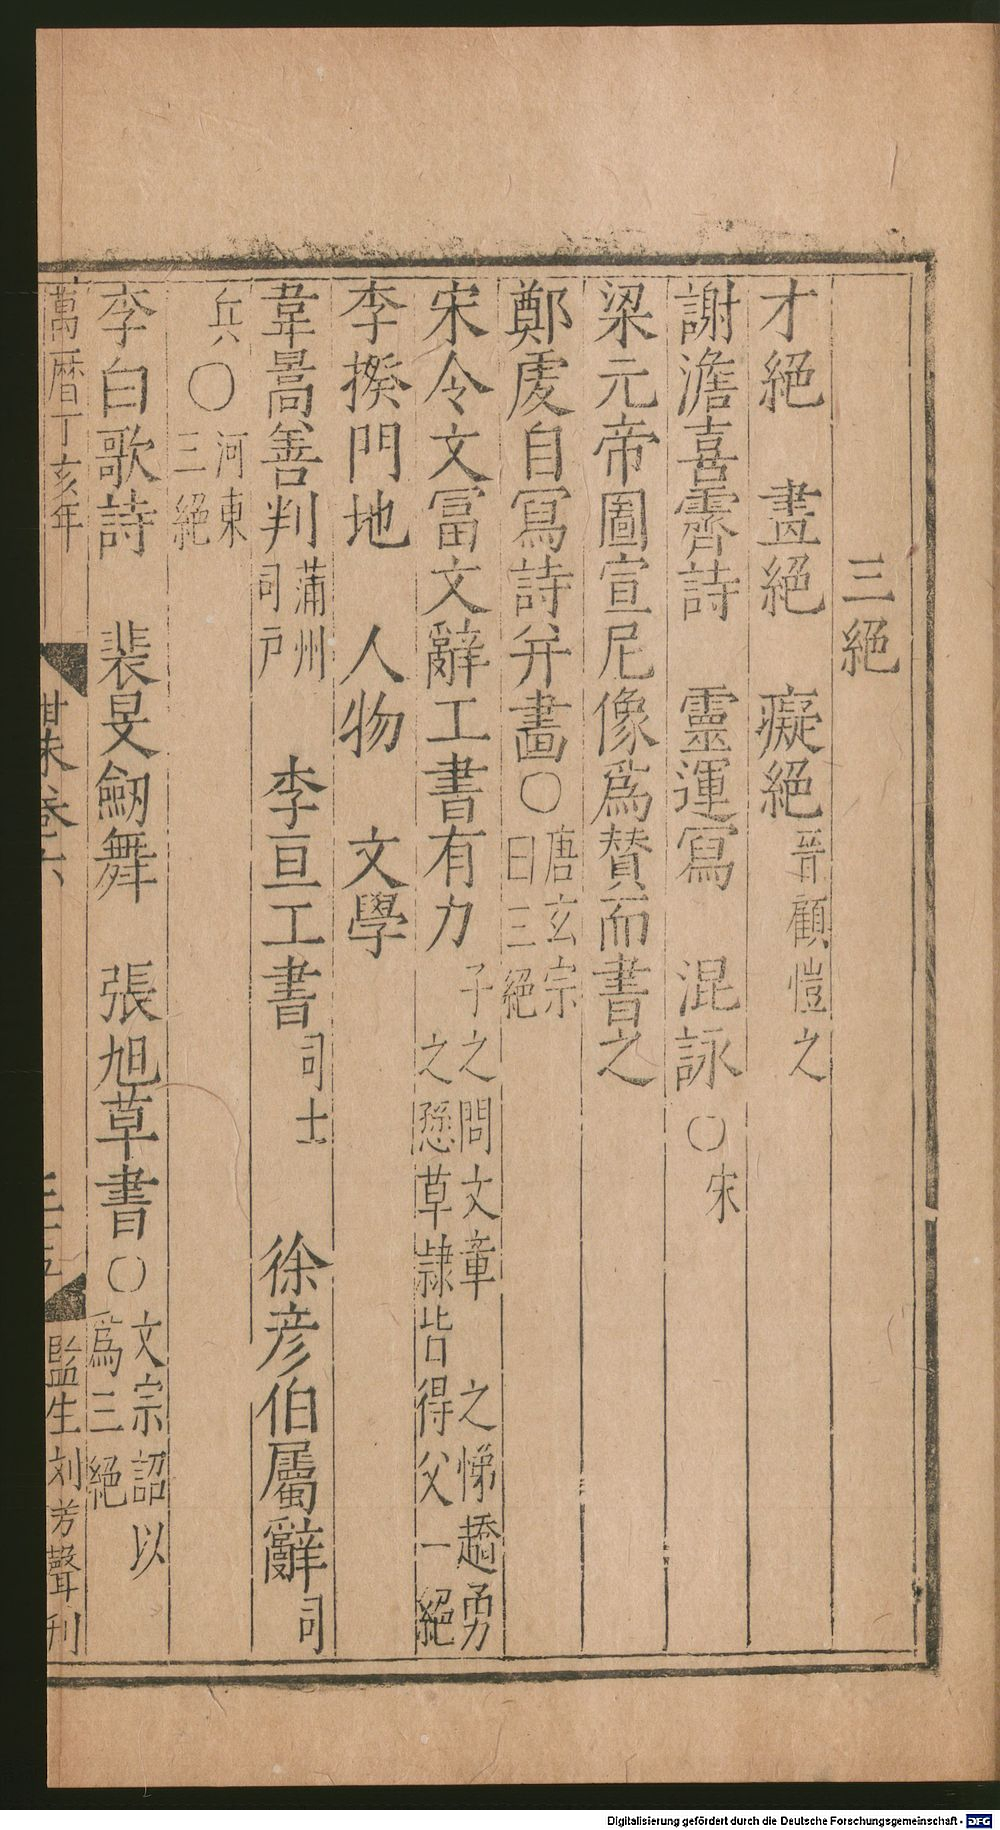 三絕
才絕 畫絕 癡絕 晉顧愷之
謝澹喜霽詩 靈運寫 混詠〇宋
梁元帝圖宣尼像為贊而書之
鄭虔自寫詩并畫〇唐玄宗曰三絕
宋令文富文辭工書有力 子之問文章 之悌趫勇之愻草隷皆得父一絕
李揆門地 人物 文學
韋暠善判 蒲州司戶 李亘工書 司士 徐彥伯屬辭 司
兵〇河東三絕
李白歌詩 裴旻劒舞 張旭草書〇文宗詔以為三絕
萬曆丁亥年 卷六 監生刘芳聲刊
Digitalisierung gefördert durch die Deutsche Forschungsgemeinschaft - DFG